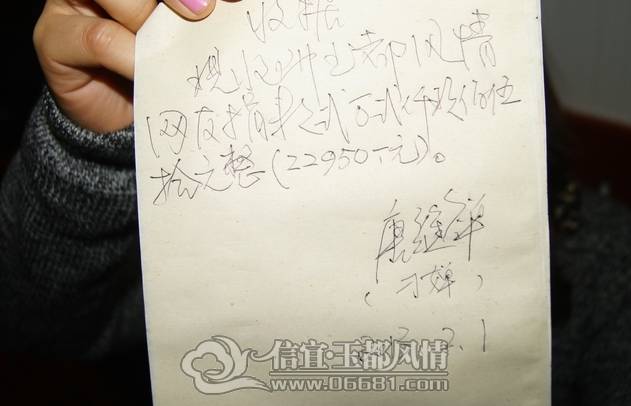 收据
现收到玉都风情
网友捐来贰万贰仟玖佰伍
拾元整（22950元）。
唐维锋
2.1
信宜·玉都风情
www.06681.com